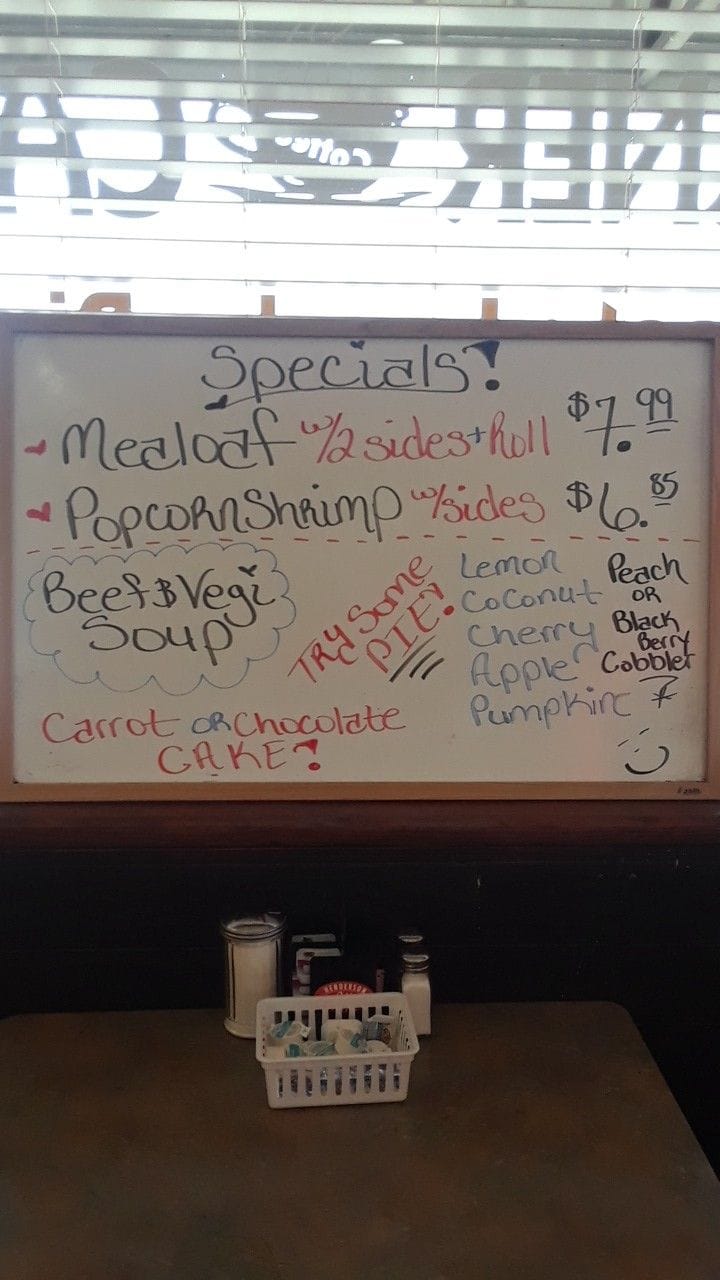 Coffee
Specials!
Mealoaf w/2 sides + Roll $7.99
Popcorn Shrimp w/sides $6.85
Beef & Vegi
Soup
Try Some
PIE!
Lemon
Coconut
Cherry
Apple
Pumpkin
Peach
OR
Black
Berry
Cobbler
Carrot OR Chocolate
CAKE!
HENDERSON